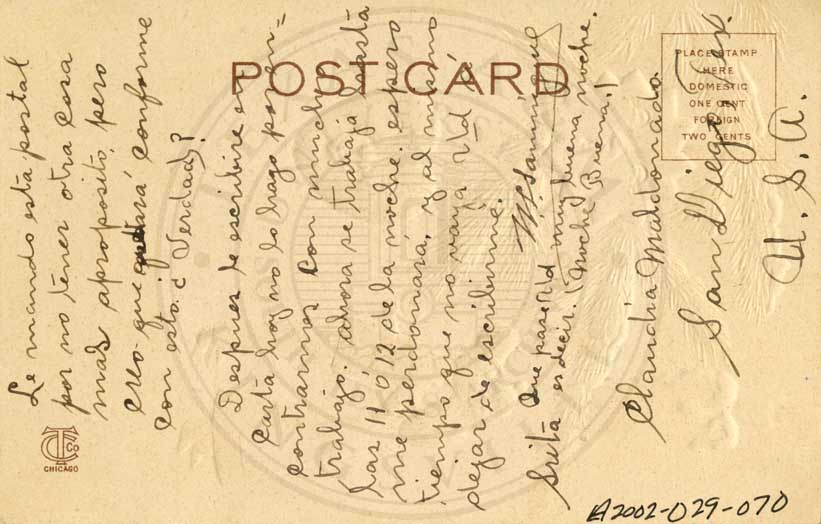 POST CARD
PLACE STAMP
HERE
DOMESTIC
ONE CENT
FOREIGN
TWO CENTS
Le mando está postal
por no tener otra cosa
mas aproposito, pero
creo que estará conforme
con esto. ¿ Verdad?
Despues le escribire en
carta hoy no lo hago por en=
contrarnos con mucho
trabajo. ahora se trabaja hastá
las 11 o 12 de la noche. espero
me perdonará, y al mismo
tiempo que no vaya Vd á
dejar de escribirme.
Que pase Vd muy buena noche.
es decir. (Noche Buena.)
Srita
Claudia Maldonado.
San Diego, Tex.
U. S. A.
TC Co
CHICAGO
A2002-029-070